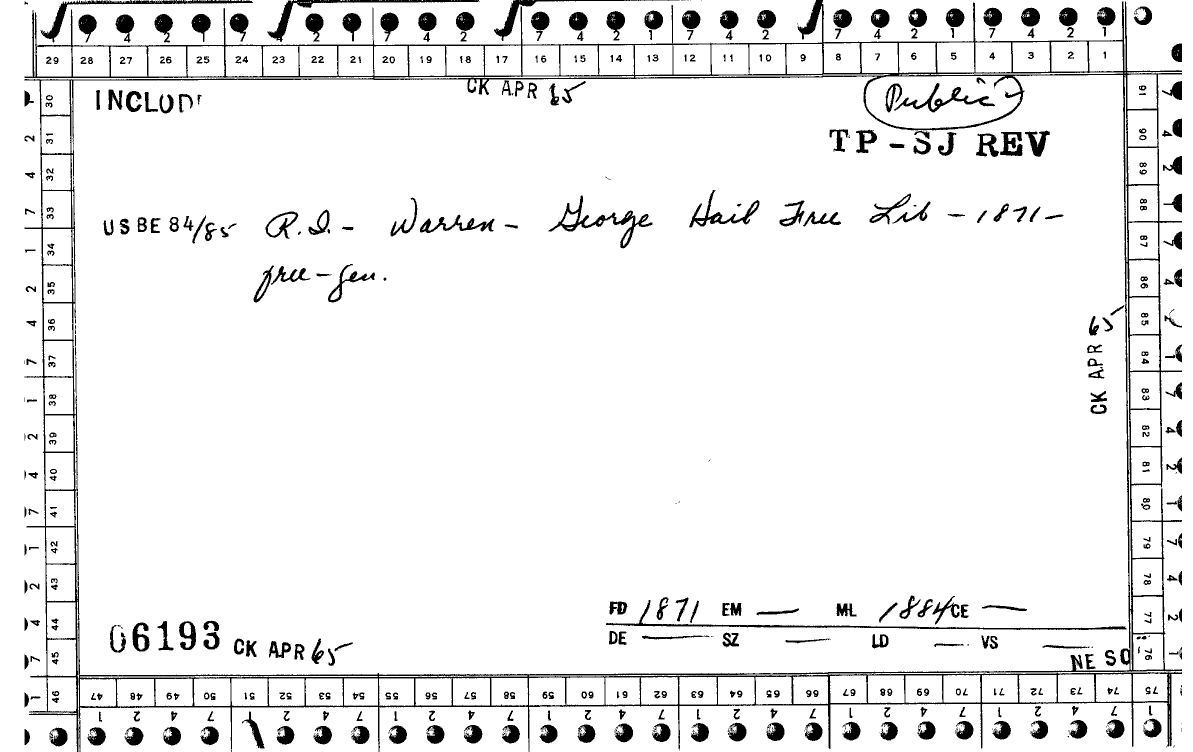 7 4 2 1 7 4 2 1 7 4 2 1 7 4 2 1 7 4 2 1 7 4 2 1 7 4 2 1
29 28 27 26 25 24 23 22 21 20 19 18 17 16 15 14 13 12 11 10 9 8 7 6 5 4 3 2 1
CK APR 65
INCLUD
Public?
TP-SJ REV
USBE 84/85 R.I. - Warren - George Hail Free Lib - 1871 -
free - gen.
CK APR 65
FD 1871 EM — ML 1884 CE —
DE — SZ — LD — VS —
06193 CK APR 65
NE SO
30 31 32 33 34 35 36 37 38 39 40 41 42 43 44 45 46
91 90 89 88 87 86 85 84 83 82 81 80 79 78 77 76
47 48 49 50 51 52 53 54 55 56 57 58 59 60 61 62 63 64 65 66 67 68 69 70 71 72 73 74 75